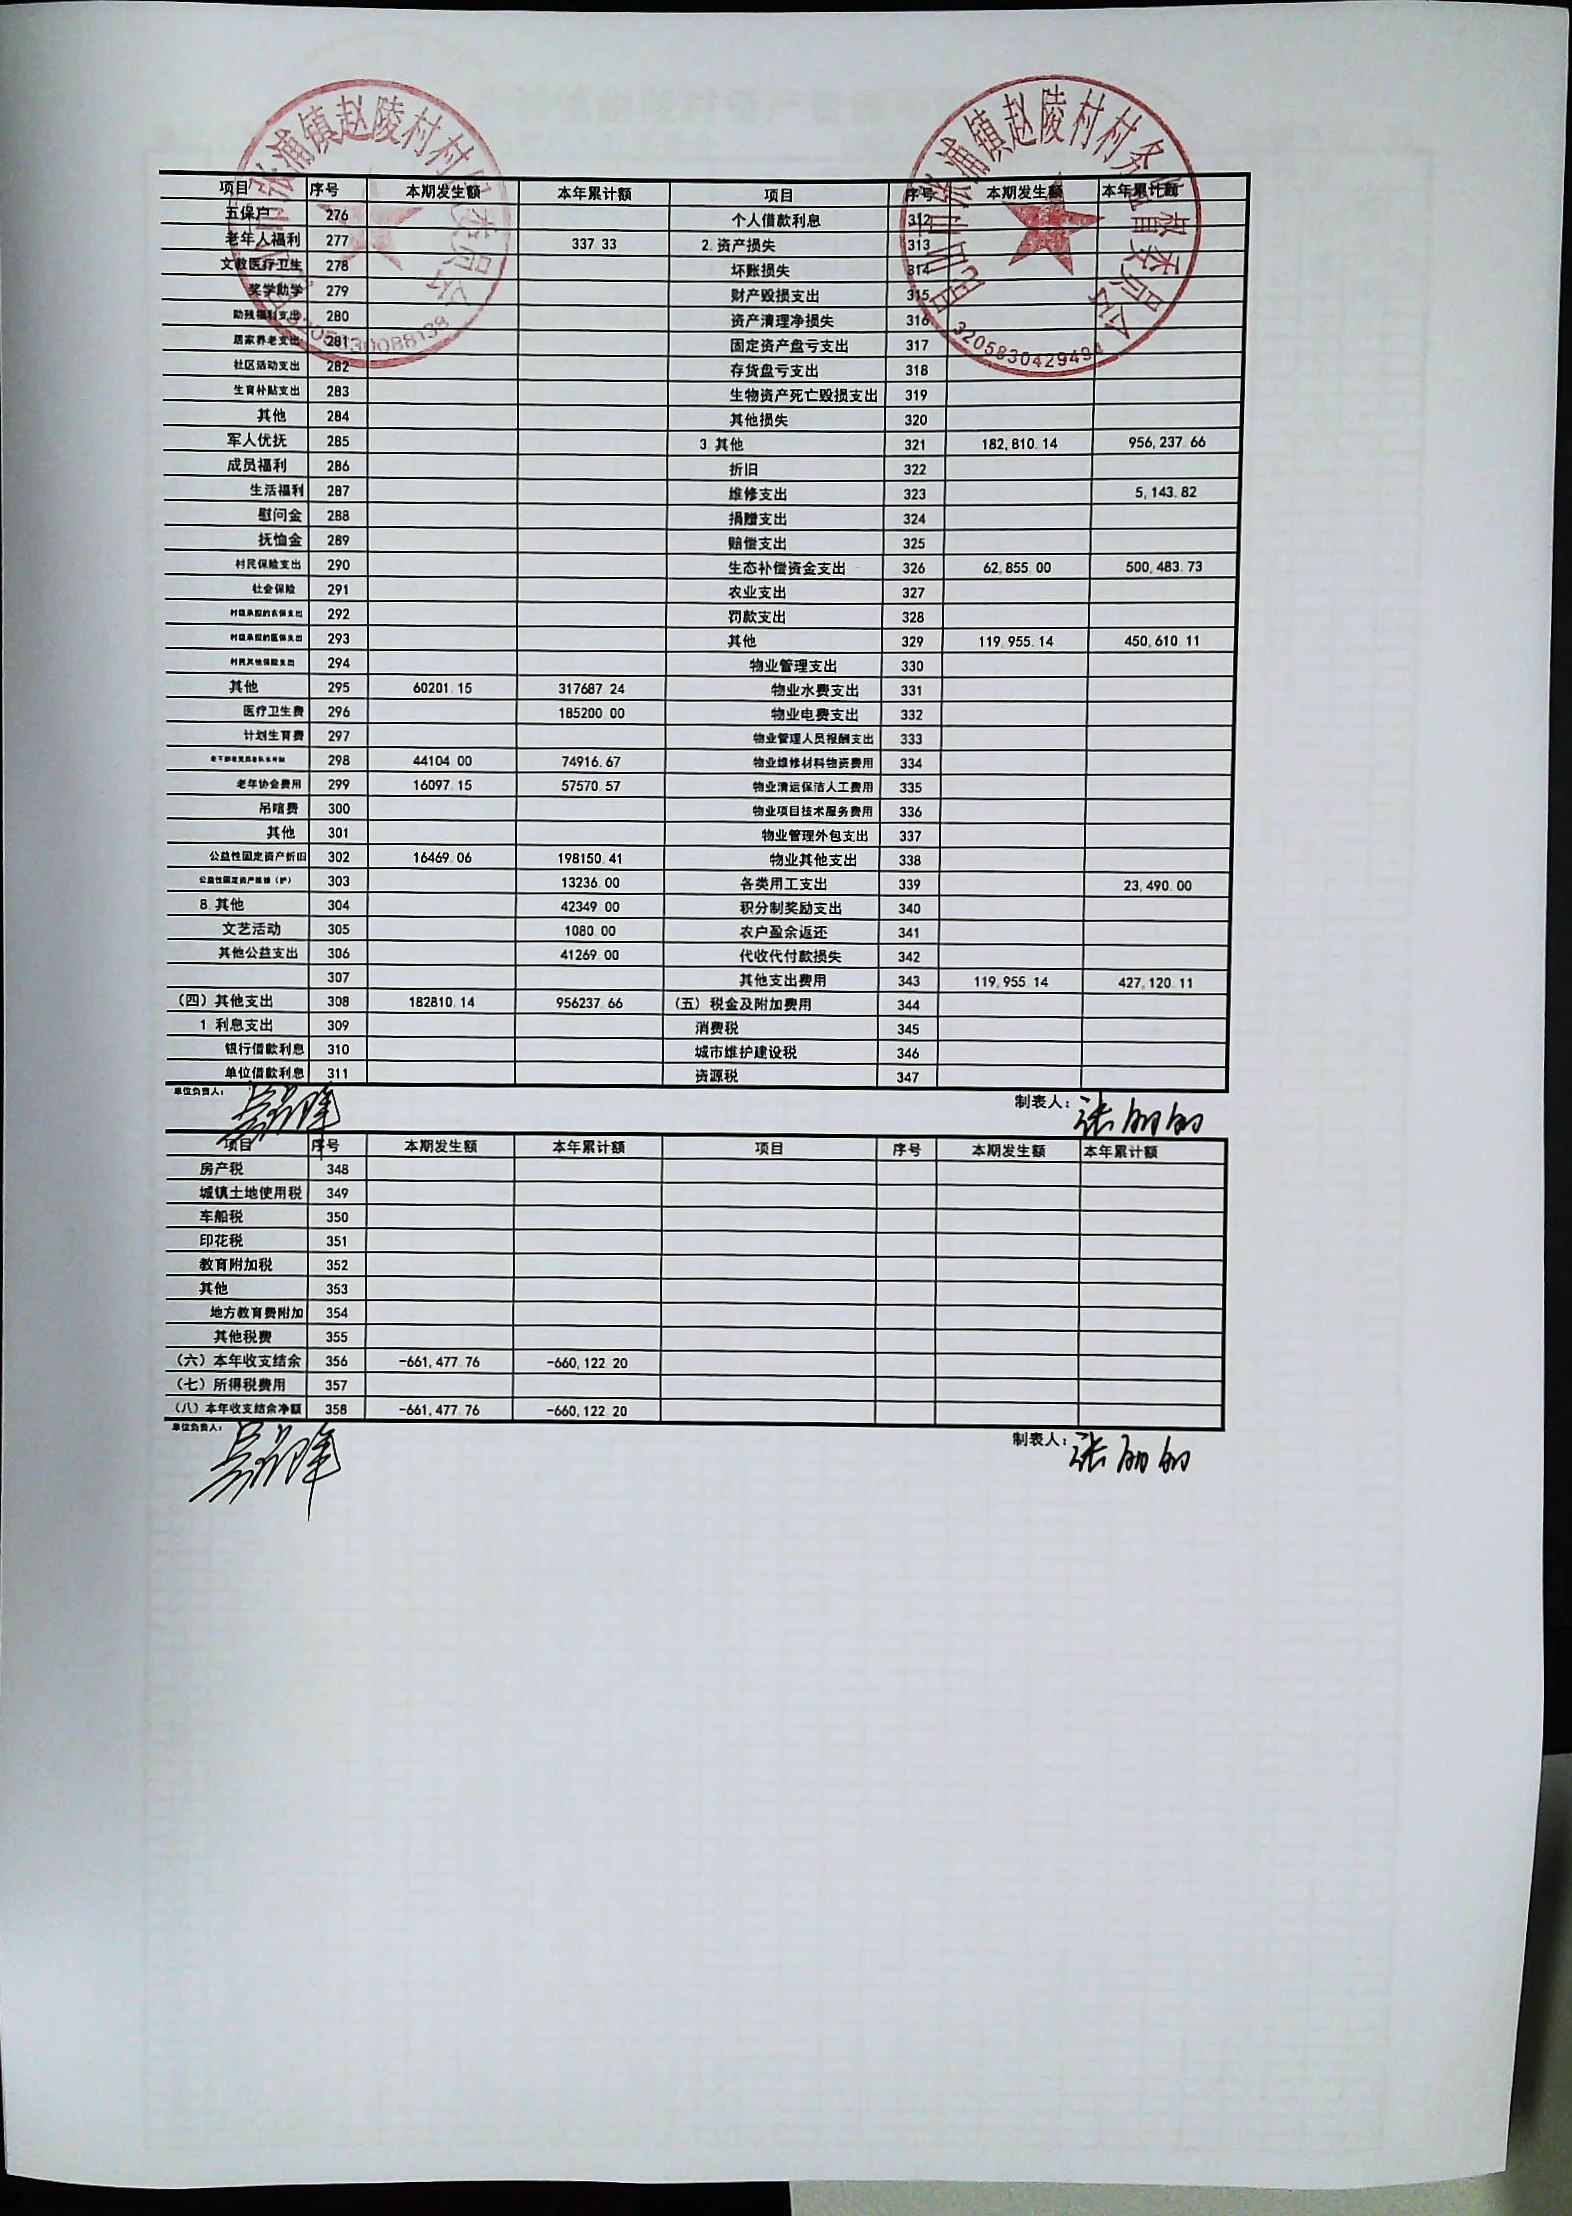 张浦镇赵陵村村
3205830088138
张浦镇赵陵村村务监督委员会
3205830429494
项目 序号 本期发生额 本年累计额 项目 序号 本期发生额 本年累计额
五保户 276 个人借款利息 312
老年人福利 277 337.33 2.资产损失 313
文教医疗卫生 278 坏账损失 314
奖学助学 279 财产毁损支出 315
助残福利支出 280 资产清理净损失 316
居家养老支出 281 固定资产盘亏支出 317
社区活动支出 282 存货盘亏支出 318
生育补贴支出 283 生物资产死亡毁损支出 319
其他 284 其他损失 320
军人优抚 285 3.其他 321 182,810.14 956,237.66
成员福利 286 折旧 322
生活福利 287 维修支出 323 5,143.82
慰问金 288 捐赠支出 324
抚恤金 289 赔偿支出 325
村民保险支出 290 生态补偿资金支出 326 62,855.00 500,483.73
社会保险 291 农业支出 327
村级承担的农保支出 292 罚款支出 328
村级承担的医保支出 293 其他 329 119,955.14 450,610.11
村民其他保险支出 294 物业管理支出 330
其他 295 60201.15 317687.24 物业水费支出 331
医疗卫生费 296 185200.00 物业电费支出 332
计划生育费 297 物业管理人员报酬支出 333
298 44104.00 74916.67 物业维修材料物资费用 334
老年协会费用 299 16097.15 57570.57 物业清运保洁人工费用 335
吊唁费 300 物业项目技术服务费用 336
其他 301 物业管理外包支出 337
公益性固定资产折旧 302 16469.06 198150.41 物业其他支出 338
公益性固定资产维修（护） 303 13236.00 各类用工支出 339 23,490.00
8.其他 304 42349.00 积分制奖励支出 340
文艺活动 305 1080.00 农户盈余返还 341
其他公益支出 306 41269.00 代收代付款损失 342
307 其他支出费用 343 119,955.14 427,120.11
（四）其他支出 308 182810.14 956237.66 （五）税金及附加费用 344
1.利息支出 309 消费税 345
银行借款利息 310 城市维护建设税 346
单位借款利息 311 资源税 347
单位负责人： 制表人：
项目 序号 本期发生额 本年累计额 项目 序号 本期发生额 本年累计额
房产税 348
城镇土地使用税 349
车船税 350
印花税 351
教育附加税 352
其他 353
地方教育费附加 354
其他税费 355
（六）本年收支结余 356 -661,477.76 -660,122.20
（七）所得税费用 357
（八）本年收支结余净额 358 -661,477.76 -660,122.20
单位负责人： 制表人：